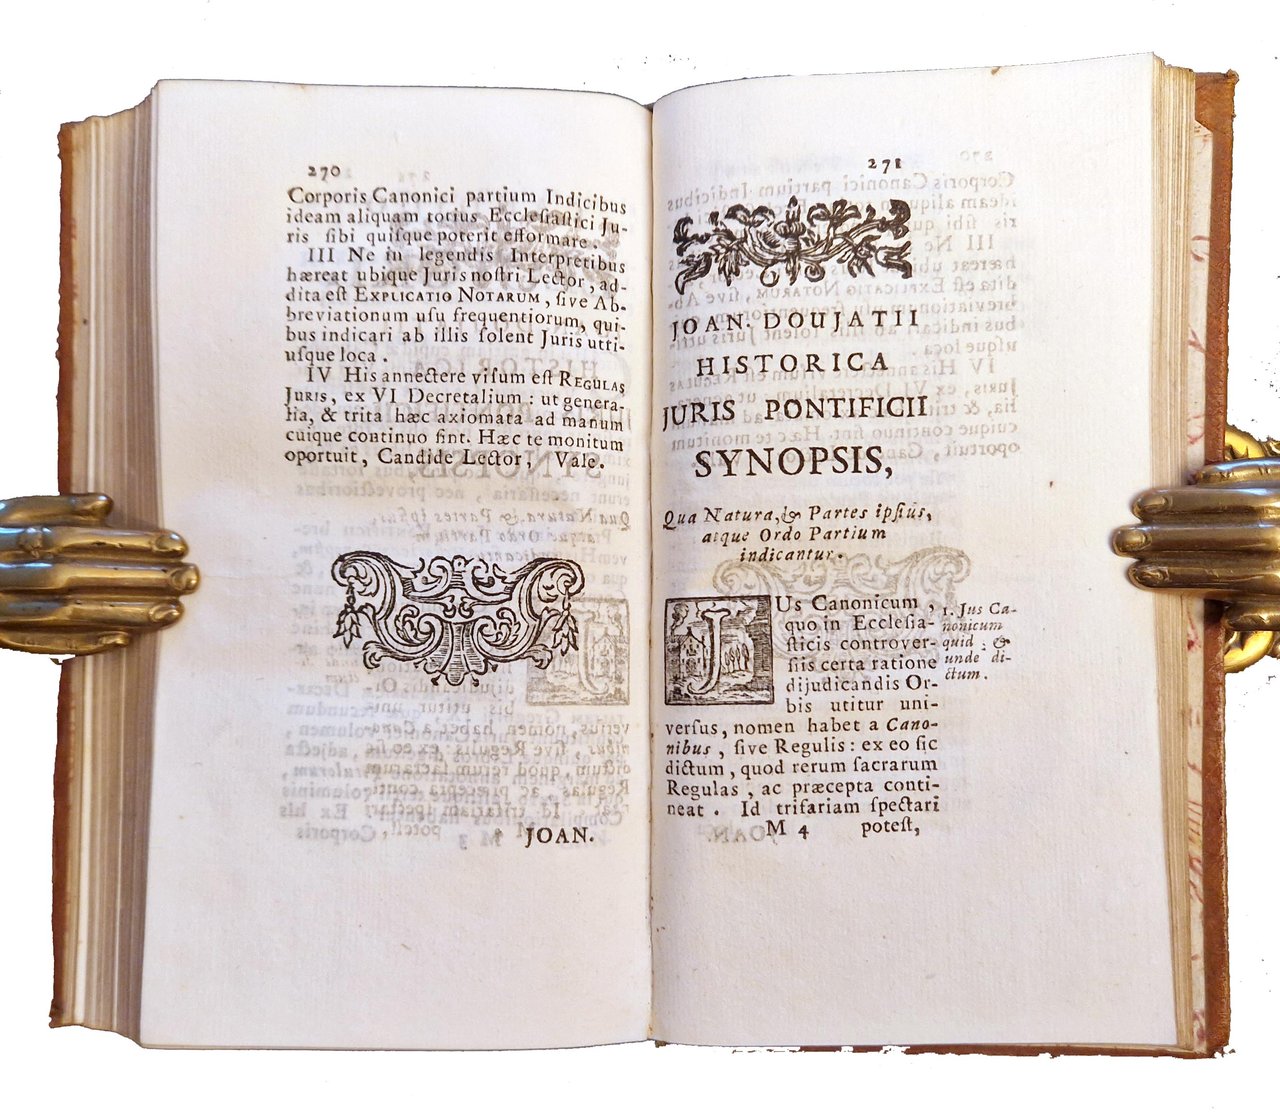 270
Corporis Canonici partium Indicibus
ideam aliquam totius Ecclesiastici Ju-
ris sibi quisque poterit efformare.
III Ne in legendis Interpretibus
hæreat ubique Juris nostri Lector, ad-
dita est EXPLICATIO NOTARUM, sive Ab-
breviationum usu frequentiorum, qui-
bus indicari ab illis solent Juris utri-
usque loca.
IV His annectere visum est REGULAS
JURIS, ex VI Decretalium: ut genera-
lia, & trita hæc axiomata ad manum
cuique continuo sint. Hæc te monitum
oportuit, Candide Lector, Vale.
JOAN.
271
JOAN. DOUJATII
HISTORICA
JURIS PONTIFICII
SYNOPSIS,
Qua Natura, & Partes ipsius,
atque Ordo Partium
indicantur.
JUs Canonicum,
quo in Ecclesia-
sticis controver-
siis certa ratione
dijudicandis Or-
bis utitur uni-
versus, nomen habet a Cano-
nibus, sive Regulis: ex eo sic
dictum, quod rerum sacrarum
Regulas, ac præcepta conti-
neat. Id trifariam spectari
1. Jus Ca-
nonicum
quid; &
unde di-
ctum.
M 4 potest,